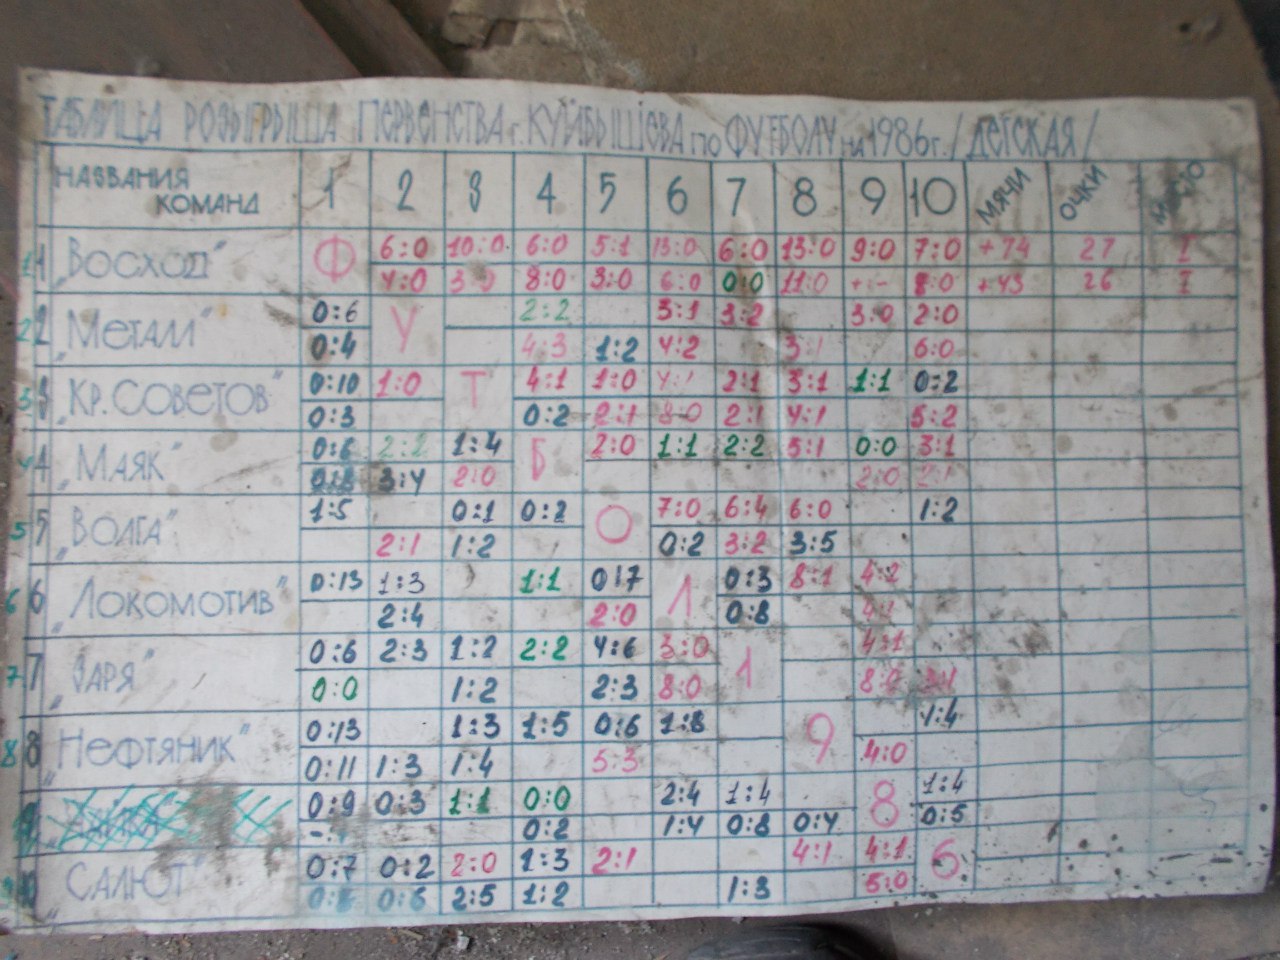 ТАБЛИЦА РОЗЫГРЫША ПЕРВЕНСТВА г. КУЙБЫШЕВА по ФУТБОЛУ на 1986г. /ДЕТСКАЯ/
НАЗВАНИЯ КОМАНД 1 2 3 4 5 6 7 8 9 10 МЯЧИ ОЧКИ
1 „Восход" Ф 6:0 10:0 6:0 5:1 13:0 6:0 13:0 9:0 7:0 +74 27 I
4:0 3:0 8:0 3:0 6:0 0:0 11:0 +:- 8:0 +43 26 I
2 „Металл" 0:6 У 2:2 3:1 3:2 3:0 2:0
0:4 4:3 1:2 4:2 3:1 6:0
3 „Кр. Советов" 0:10 1:0 Т 4:1 1:0 4:1 2:1 3:1 1:1 0:2
0:3 0:2 2:1 8:0 2:1 4:1 5:2
4 „Маяк" 0:6 2:2 1:4 Б 2:0 1:1 2:2 5:1 0:0 3:1
0:8 3:4 2:0 2:0 2:1
5 „Волга" 1:5 0:1 0:2 О 7:0 6:4 6:0 1:2
2:1 1:2 0:2 3:2 3:5
6 „Локомотив" 0:13 1:3 1:1 0:7 Л 0:3 8:1 4:2
2:4 2:0 0:8 4:1
7 „Заря" 0:6 2:3 1:2 2:2 4:6 3:0 1 4:1
0:0 1:2 2:3 8:0 8:0 3:1
8 „Нефтяник" 0:13 1:3 1:5 0:6 1:8 9 1:4
0:11 1:3 1:4 5:3 4:0
0:9 0:3 1:1 0:0 2:4 1:4 8 1:4
0:2 1:4 0:8 0:4 0:5
10 „Салют" 0:7 0:2 2:0 1:3 2:1 4:1 4:1 6
0:8 0:6 2:5 1:2 1:3 5:0